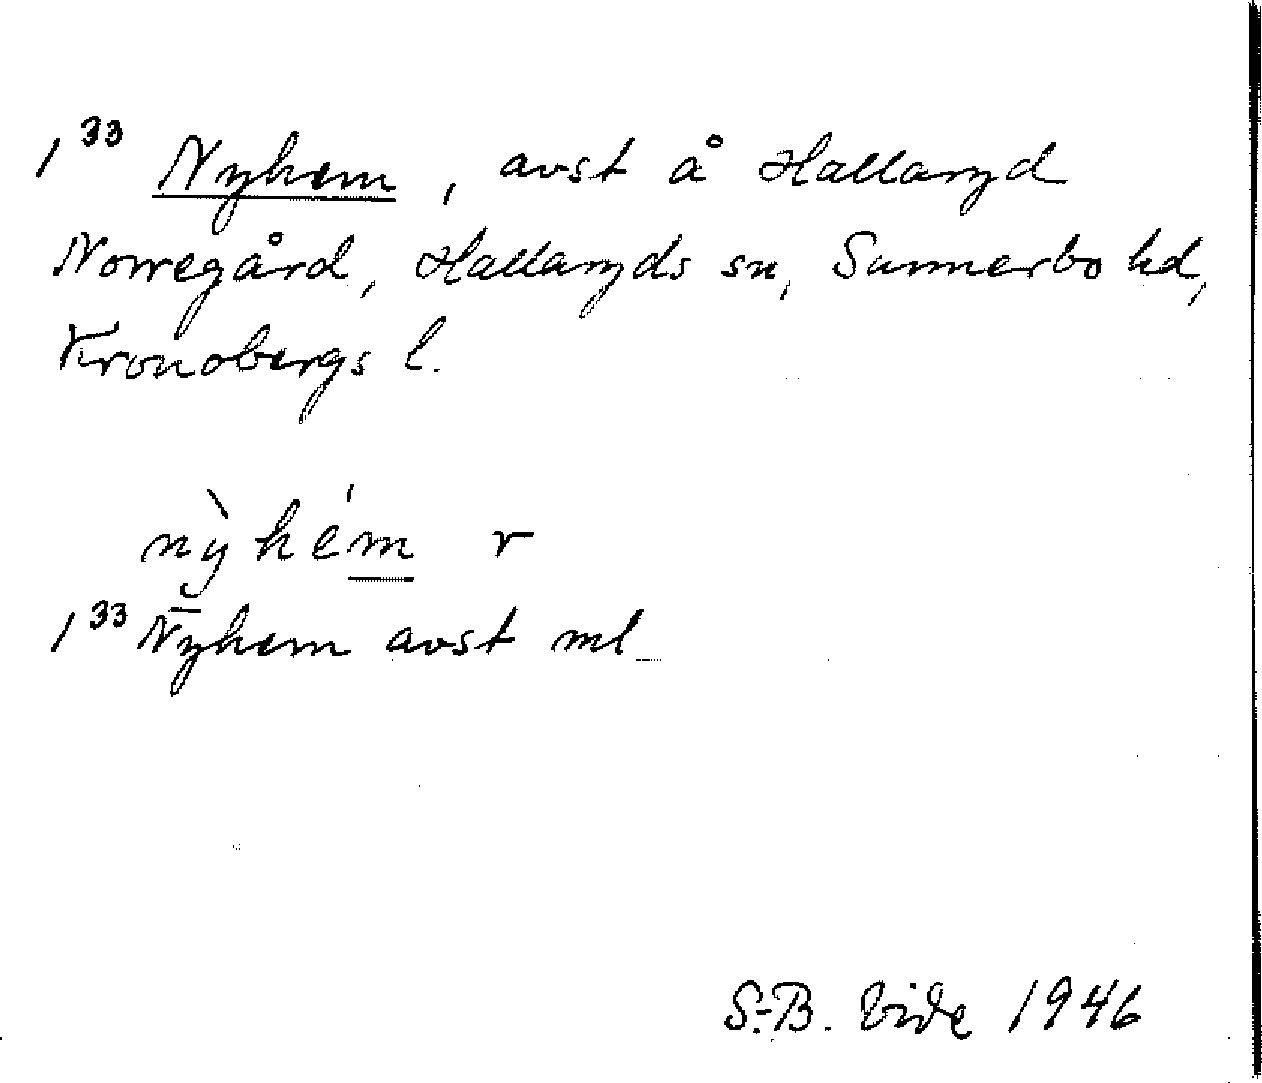 1³³ Nyhem, avst å Hallaryd
Norregård, Hallaryds sn, Sunnerbo hd,
Kronobergs l.
nỳhém r
1³³ Nyhem avst ml
S.-B. Vide 1946